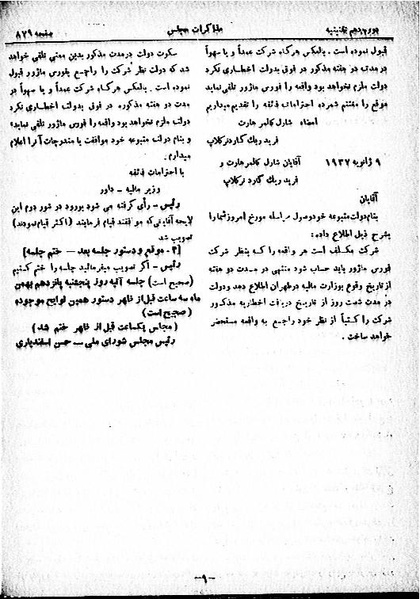 دوره دهم تقنینیه
مذاکرات مجلس
صفحه ۸۷۹
قبول نموده است. بالعکس هرگاه شرکت عمداً و یا سهواً
در مدت دو هفته مذکور در فوق بدولت اخطاری نکرد
دولت ملزم نخواهد بود واقعه را فورس ماژور تلقی نماید
موقع را مغتنم شمرده احترامات فائقه را تقدیم میداریم
امضاء شارل کالمر هارت
فرید ریک گاردنر کلاپ
۹ ژانویه ۱۹۳۷ آقایان شارل کالمر هارت و
فرید ریک گاردنر کلاپ
آقایان
بنام دولت متبوعه خود وصول مراسله مورخ امروز شما را
بشرح ذیل اطلاع داده:
شرکت مکلف است هر واقعه را که بنظر شرکت
فورس ماژور باید حساب شود منتهی در مدت دو هفته
از تاریخ وقوع بوزارت مالیه در طهران اطلاع دهد و دولت
در مدت شصت روز از تاریخ دریافت اخطاریه مذکور
شرکت را کتباً از نظر خود راجع به واقعه مستحضر
خواهد ساخت.
سکوت دولت در مدت مذکور بدین معنی تلقی خواهد
شد که دولت نظر شرکت را راجع بفورس ماژور قبول
نموده است. بالعکس هرگاه شرکت عمداً و یا سهواً در
مدت دو هفته مذکوره در فوق بدولت اخطاری نکرد
دولت ملزم نخواهد بود واقعه را فورس ماژور تلقی نماید
و بنام دولت متبوعه خود موافقت با مندرجات آنرا اعلام
میدارم.
با احترامات فائقه
وزیر مالیه - داور
رئیس - رأی گرفته می شود بورود در شور دوم این
لایحه آقایانی که موافقند قیام فرمایند (اکثر قیام نمودند)
تصویب شد
[۳ - موقع و دستور جلسه بعد - ختم جلسه]
رئیس - اگر تصویب میفرمائید جلسه را ختم کنیم
(صحیح است) جلسه آتیه روز پنجشنبه پانزدهم بهمن
ماه سه ساعت قبل از ظهر دستور همین لوایح موجوده
(صحیح است)
(مجلس یکساعت قبل از ظهر ختم شد)
رئیس مجلس شورای ملی - حسن اسفندیاری
-۹-